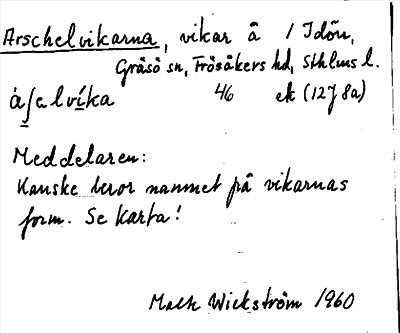 Arschelvikarna, vikar å / Idön,
Gräsö sn, Frösåkers hd, Sthlms l.
áʃelvíka 46 ek (12J 8a)
Meddelaren:
Kanske beror namnet på vikarnas
form. Se karta!
Wickström 1960